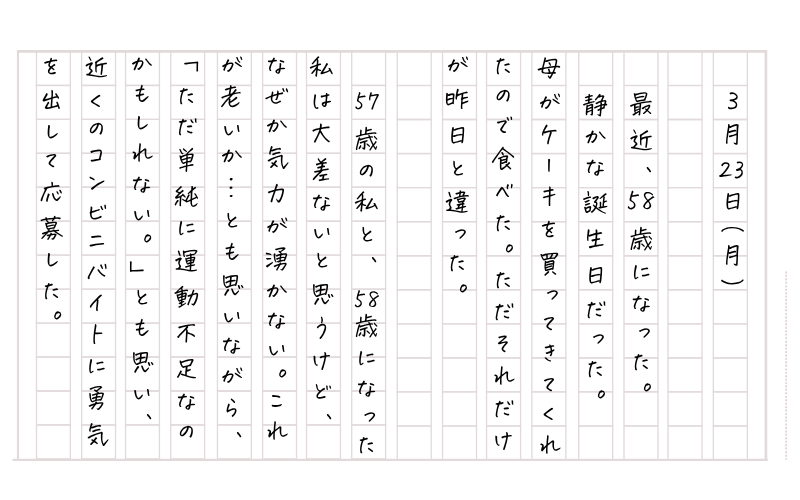 3月23日(月)
最近、58歳になった。
静かな誕生日だった。
母がケーキを買ってきてくれ
たので食べた。ただそれだけ
が昨日と違った。
57歳の私と、58歳になった
私は大差ないと思うけど、
なぜか気力が湧かない。これ
が老いか…とも思いながら、
「ただ単純に運動不足なの
かもしれない。」とも思い、
近くのコンビニバイトに勇気
を出して応募した。